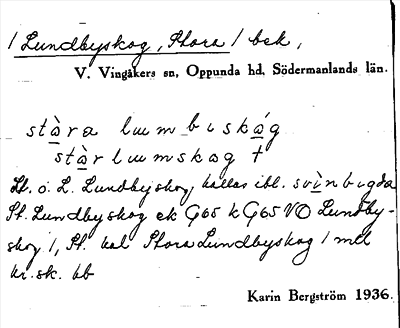 / Lundbyskog, Stora / bek,
V. Vingåkers sn, Oppunda hd, Södermanlands län.
stàra lumbiskág
stàrlumskag †
St. o. L. Lundbyskog, kallas ibl. svinbygda
St. Lundbyskog ek G65 k G65 VO Lundby-
skog /, St. kal Stora Lundbyskog / med
kr. sk. bb
Karin Bergström 1936.